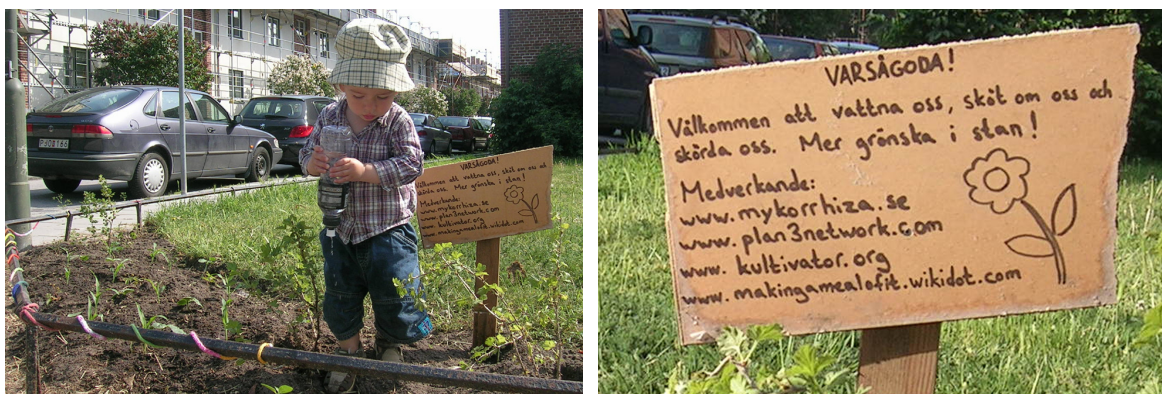 VARSÅGODA!
Välkommen att vattna oss, sköt om oss och
skörda oss. Mer grönska i stan!
Medverkande:
www.mykorrhiza.se
www.plan3network.com
www.kultivator.org
www.makingamealofit.wikidot.com
VARSÅGODA!
Välkommen att vattna oss, sköt om oss och
skörda oss. Mer grönska i stan!
Medverkande:
www.mykorrhiza.se
www.plan3network.com
www. kultivator.org
www.makingamealofit.wikidot.com